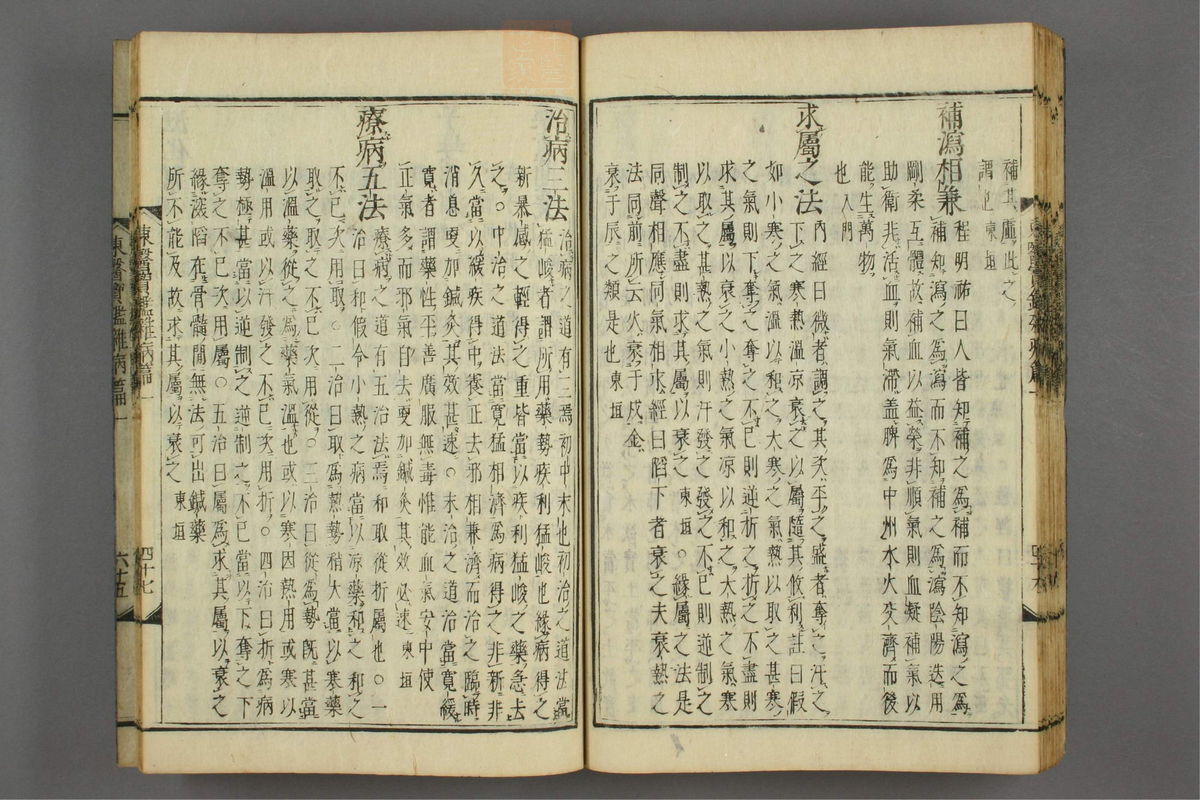 補其虛此之
謂也東垣
補瀉相兼 程明祐曰人皆知補之爲補而不知瀉之爲
補知瀉之爲瀉而不知補之爲瀉陰陽迭用
剛柔互體故補血以益榮非順氣則血凝補氣以
助衛非活血則氣滯盖脾爲中州水火交濟而後
能生萬物
也入門
求屬之法 內經曰微者調之其次平之盛者奪之汗之
下之寒熱溫凉衰之以屬隨其攸利註曰假
如小寒之氣溫以和之大寒之氣熱以取之甚寒
之氣則下奪之奪之不已則逆折之折之不盡則
求其屬以衰之小熱之氣凉以和之大熱之氣寒
以取之甚熱之氣則汗發之發之不已則逆制之
制之不盡則求其屬以衰之東垣○緣屬之法是
同聲相應同氣相求經曰陷下者衰之夫衰熱之
法同前所云火衰于戌金
衰于辰之類是也東垣
治病三法 治病之道有三焉初中末也初治之道法當
猛峻者謂所用藥勢疾利猛峻也緣病得之
新暴感之輕得之重皆當以疾利猛峻之藥急去
之中治之道法當寬猛相濟爲病得之非新非
久當以緩疾得中養正去邪相兼濟而治之臨時
消息更加鍼灸其效甚速○末治之道治當寬緩
寬者謂藥性平善廣服無毒惟能血氣安中使
正氣多而邪氣自去更加鍼灸其效必速東垣
療病五法 療病之道有五治法焉和取從折屬也○一
治曰和假令小熱之病當以凉藥和之和之
不已次用取○二治曰取爲熱勢稍大當以寒藥
取之取之不已次用從○三治曰從爲勢既甚當
以溫藥從之爲藥氣溫也或以寒因熱用或寒以
溫用或以汗發之不已次用折○四治曰折爲病
勢極甚當以逆制之逆制之不已當以下奪之下
奪之不已次用屬○五治曰屬爲求其屬以衰之
緣深陷在骨髓間無法可出鍼藥
所不能及故求其屬以衰之東垣
東醫寶鑑雜病篇一
四十七
六十五